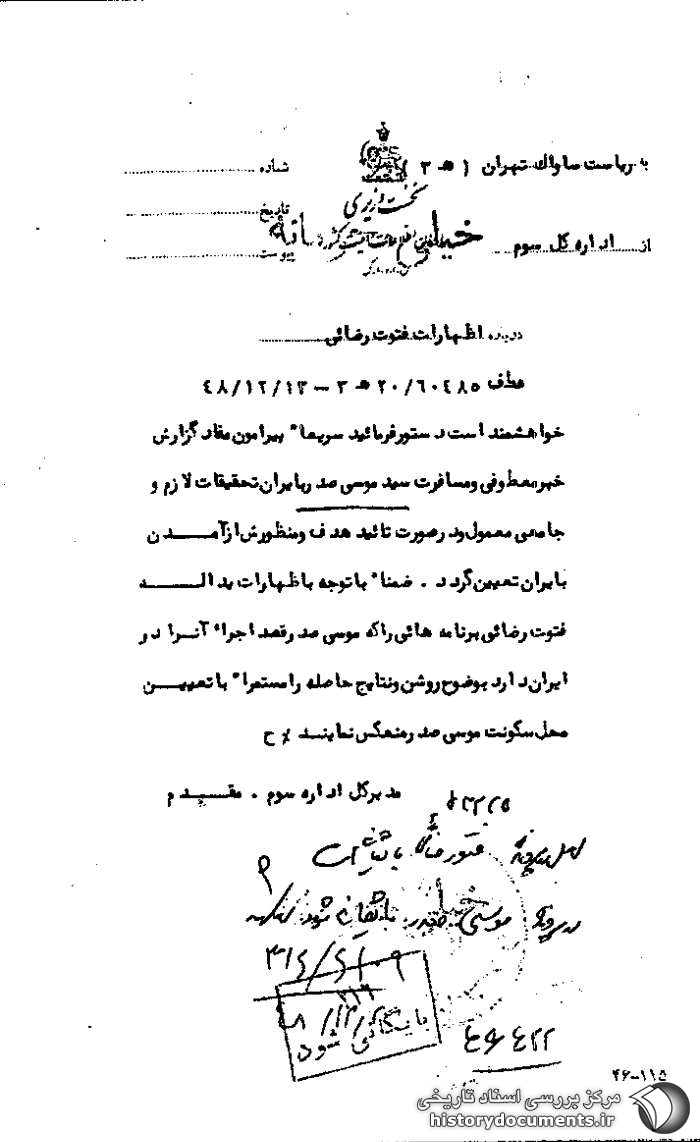 به ریاست ساواک تهران ( ۳ ه ۱ )
شماره
نخست وزیری
تاریخ
از اداره کل سوم
خیلی
پیوست
درباره اظهارات فتوت رضائی
عطف ۲۰/۶۰۴۸۵ ه ۳ – ۴۸/۱۲/۱۳
خواهشمند است دستور فرمائید سریعا" پیرامون مفاد گزارش
خبر معطوفی و مسافرت سید موسی صدر بایران تحقیقات لازم و
جامعی معمول و در صورت تائید هدف و منظورش از آمدن
بایران تعیین گردد . ضمنا" با توجه باظهارات یدالله
فتوت رضائی برنامه هائی را که موسی صدر قصد اجراء آنرا در
ایران دارد بوضوح روشن و نتایج حاصله را مستمرا" با تعیین
محل سکونت موسی صدر منعکس نمایند ٪ ح
مدیر کل اداره سوم . مقدم
موسی صدر بایگانی شود
۳۱۶
بایگانی شود
۴۶۴۲۲
۴۶-۱۱۵
مرکز بررسی اسناد تاریخی
historydocuments.ir